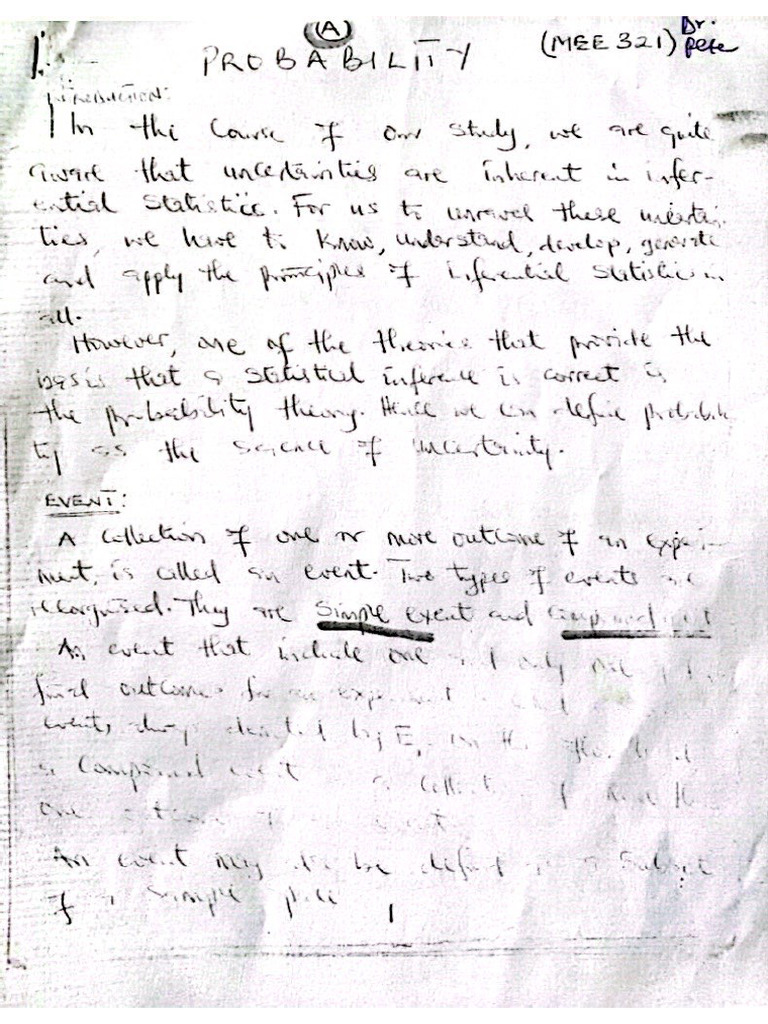 (A)
1. PROBABILITY (MEE 321) Dr. Pete
INTRODUCTION:
In the course of our study, we are quite
aware that uncertainities are inherent in infer-
ential Statistics. For us to unravel these uncertain
ties, we have to know, understand, develop, generate
and apply the principles of inferential statistics in
all.
However, one of the theories that provide the
basis that a statistical inference is correct is
the probability theory. Hence we can define probabili
ty as the science of uncertainity.
EVENT:
A Collection of one or more outcome of an experi-
ment, is called an event. Two types of events are
recorgnised. They are Simple event and Compound event
An event that include one and only one
final outcomes for an experiment
events, denoted by E, on the other hand
a Compound event collection of more than
one outcome
An event may also be defined as a Subset
of a sample space
1